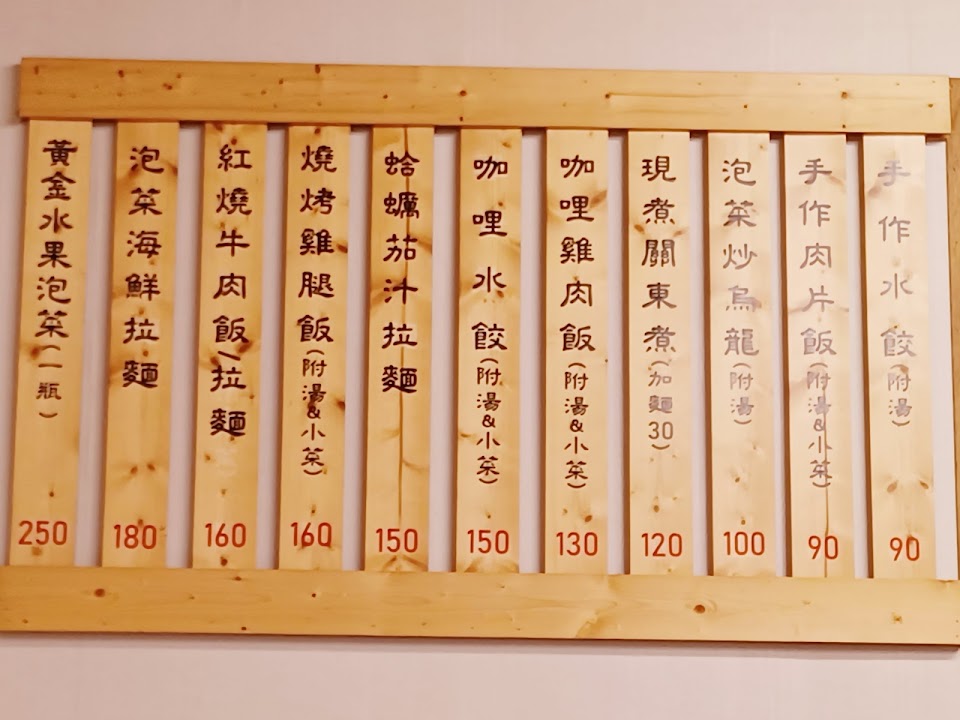 手作水餃(附湯) 90
手作肉片飯(附湯&小菜) 90
泡菜炒烏龍(附湯) 100
現煮關東煮(加麵30) 120
咖哩雞肉飯(附湯&小菜) 130
咖哩水餃(附湯&小菜) 150
蛤蠣茄汁拉麵 150
燒烤雞腿飯(附湯&小菜) 160
紅燒牛肉飯/拉麵 160
泡菜海鮮拉麵 180
黃金水果泡菜(一瓶) 250